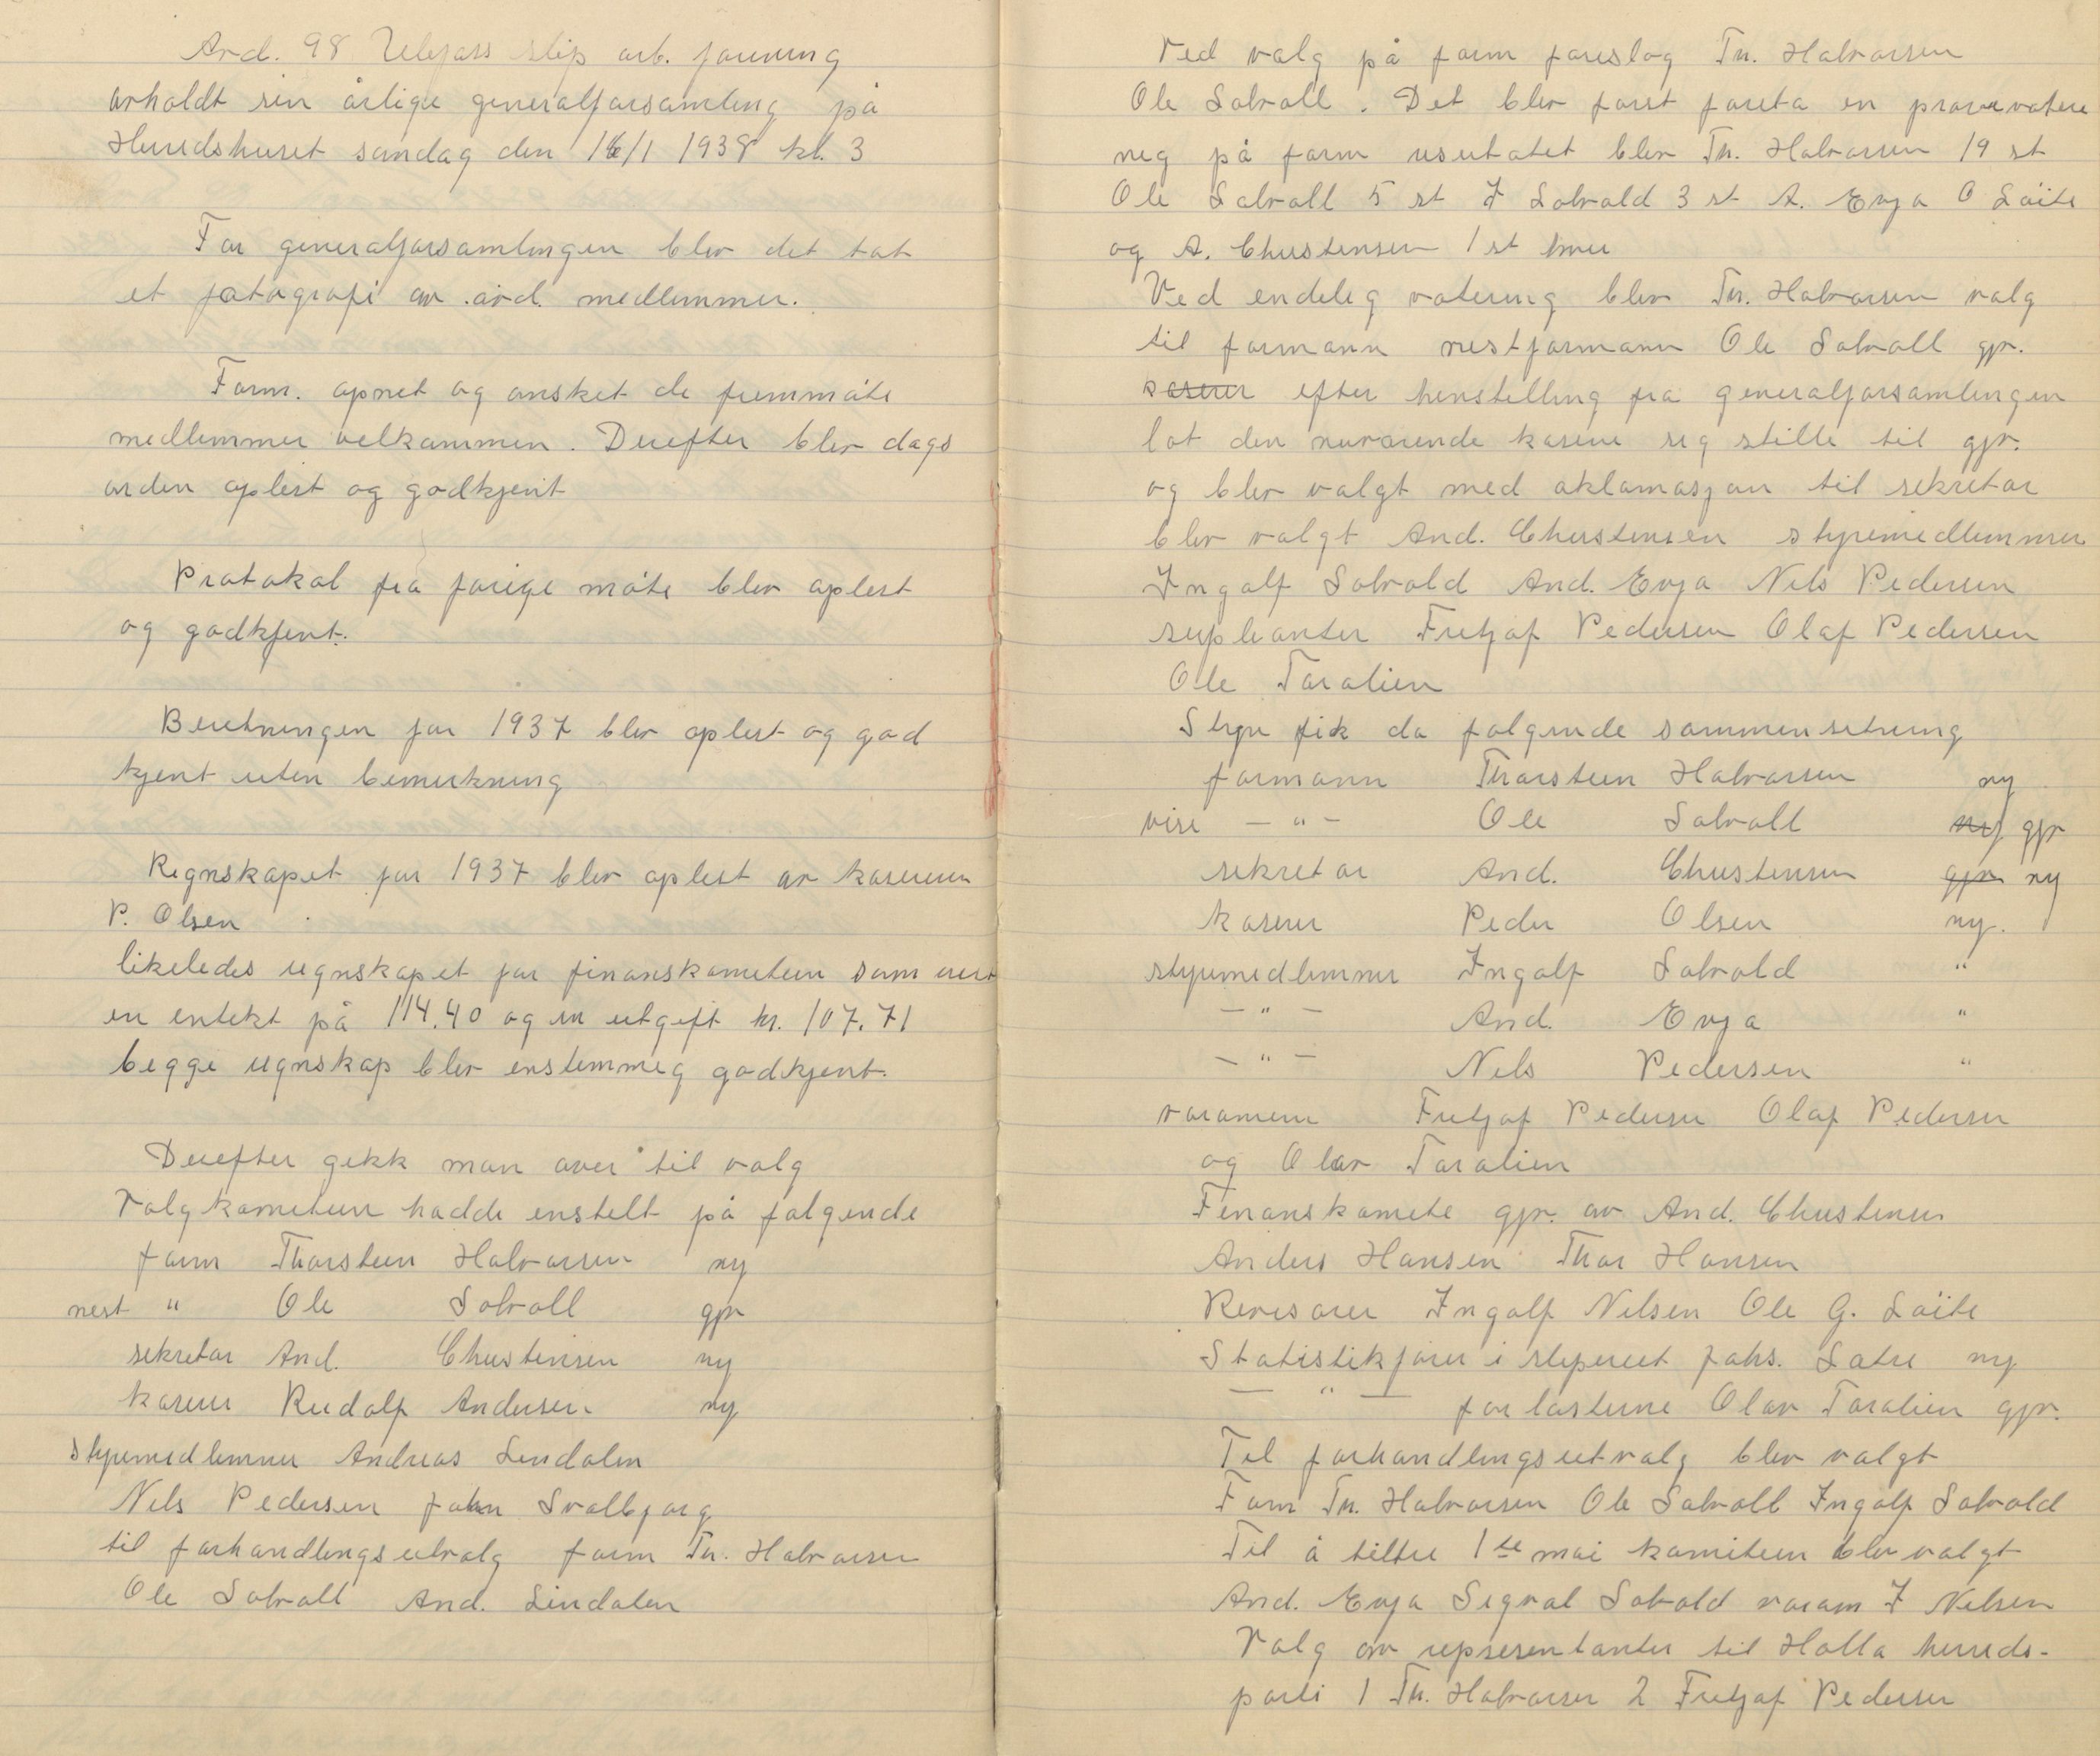 Avd. 98 Ulefoss slip arb. forening
avholdt sin årlige generalforsamling på
Herredshuset søndag den 16/1 1938 kl. 3
For generalforsamlingen blev det tat
et fotografi av avd. medlemmer.
Form. åpnet og ønsket de fremmøte
medlemmer velkommen. Derefter blev dags
orden oplest og godkjent
Protokol fra forige møte blev oplest
og godkjent.
Beretningen for 1937 blev oplest og god
kjent uten bemerkning
Regnskapet for 1937 blev oplest av kasereren
P. Olsen
likeledes regnskapet for finanskomiteen som
en entekt på 114.40 og en utgift kr. 107.71
begge regnskap blev enstemmig godkjent.
Derefter gikk man over til valg
Valgkomiteen hadde enstelt på følgende
form Thorsteen Halvorsen ny
nest " Ole Solvoll gjv
sekretær And. Christensen ny
kaserer Rudolf Andersen ny
styremedlemmer Andreas Lindalen
Nils Pedersen John Svalbjørg
til forhandlingsutvalg form Th. Halvorsen
Ole Solvoll And. Lindalen
Ved valg på form foreslog Th. Halvorsen
Ole Solvoll. Det blev først foreta en prøvevotere
neg på form resutatet blev Th. Halvorsen 19 st
Ole Solvoll 5 st I Solvold 3 st A. Evja O Løite
og A. Christensen 1 st hver
Ved endelig votering blev Th. Halvorsen valg
til formann nestformann Ole Solvoll gjv.
kaserer efter henstilling fra generalforsamlingen
lot den nuværende kaserer sig stille til gjv.
og blev valgt med aklamasjon til sekretær
blev valgt And. Christensen styremedlemmer
Ingolf Solvold And. Evja Nils Pedersen
supleanter Fritjof Pedersen Olaf Pedersen
Ole Taralien
Styre fik da følgende sammensetning
formann Thorsteen Halvorsen ny
vise - " - Ole Solvoll ny gjv
sekretær And. Christensen gjv ny
kaserer Peder Olsen ny.
styremedlemmer Ingolf Solvold "
- " - And. Evja "
- " - Nils Pedersen "
varamenn Fritjof Pedersen Olaf Pedersen
og Olav Taralien
Finanskomite gjv. av And. Christensen
Anders Hansen Thor Hansen
Revisorer Ingolf Nilsen Ole G. Løite
Statistikfører i sliperiet Johs. Sætre ny
- " - for lasterne Olav Taralien gjv.
Til forhandlingsutvalg blev valgt
Form Th. Halvorsen Ole Solvoll Ingolf Solvold
Til å tiltre 1ste mai komiteen blev valgt
And. Evja Sigval Solvold varam I Nilsen
Valg av representanter til Holla herreds-
parti 1 Th. Halvorsen 2 Fritjof Pedersen